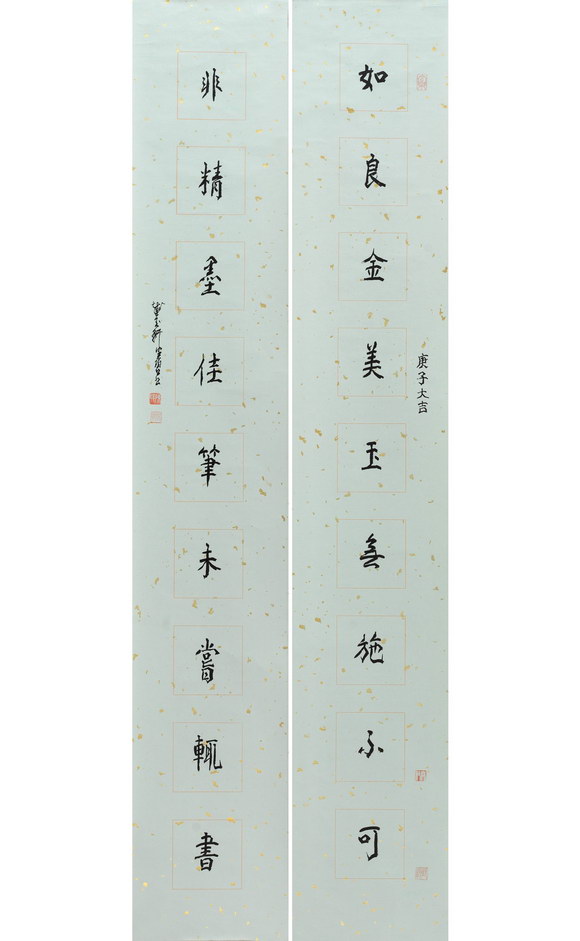 如良金美玉無施不可
庚子大吉
非精墨佳筆未嘗輒書